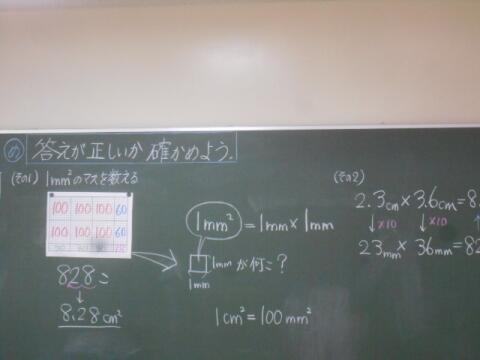 め 答えが正しいか確かめよう.
(その1) 1mm²のマスを数える
100 100 100 60
100 100 100 60
828こ
↓
8.28cm²
1mm² = 1mm×1mm
1mm が何こ?
1mm
1cm² = 100mm²
(その2)
2.3cm × 3.6cm = 8.
↓×10 ↓×10
23mm × 36mm = 82